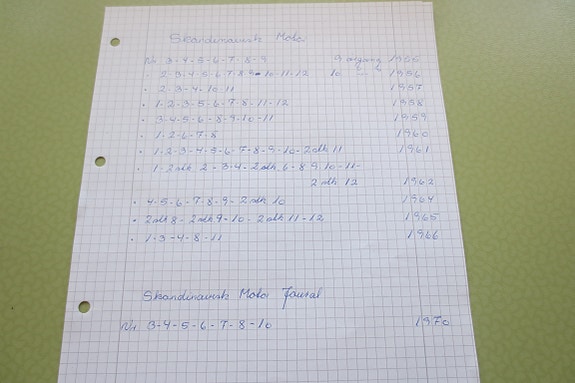 Skandinavisk Motor
Nr. 3-4-5-6-7-8-9 9 årgang 1955
" 2-3-4-5-6-7-8-9-10-11-12 10 " " 1956
" 2-3-4-10-11 1957
" 1-2-3-5-6-7-8-11-12 1958
" 3-4-5-6-8-9-10-11 1959
" 1-2-6-7-8 1960
" 1-2-3-4-5-6-7-8-9-10-2stk 11 1961
" 1-2stk 2-3-4-2stk 6-8-9-10-11-
2stk 12 1962
" 4-5-6-7-8-9-2stk 10 1964
" 2stk 8-2stk 9-10-2stk 11-12 1965
" 1-3-4-8-11 1966
Skandinavisk Motor Journal
Nr. 3-4-5-6-7-8-10 1970